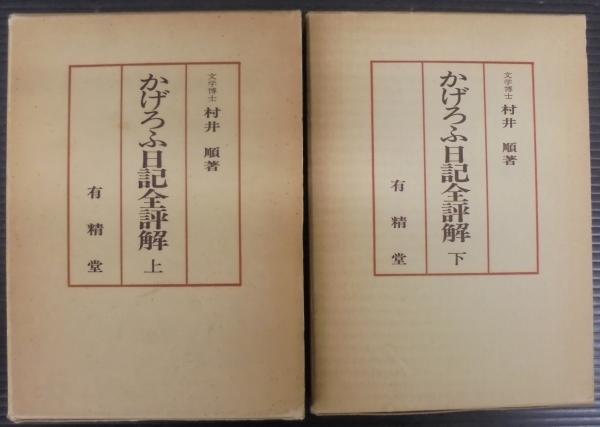 文学博士 村井 順著
かげろふ日記全評解 上
有精堂
文学博士 村井 順著
かげろふ日記全評解 下
有精堂